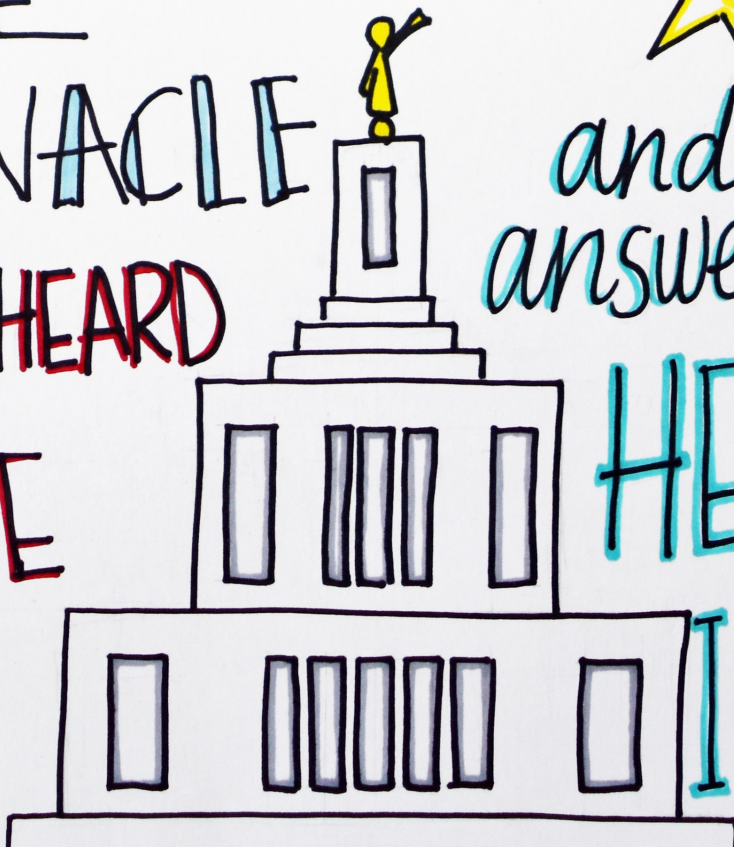 E
NACLE
HEARD
E
and
answe
HE
I